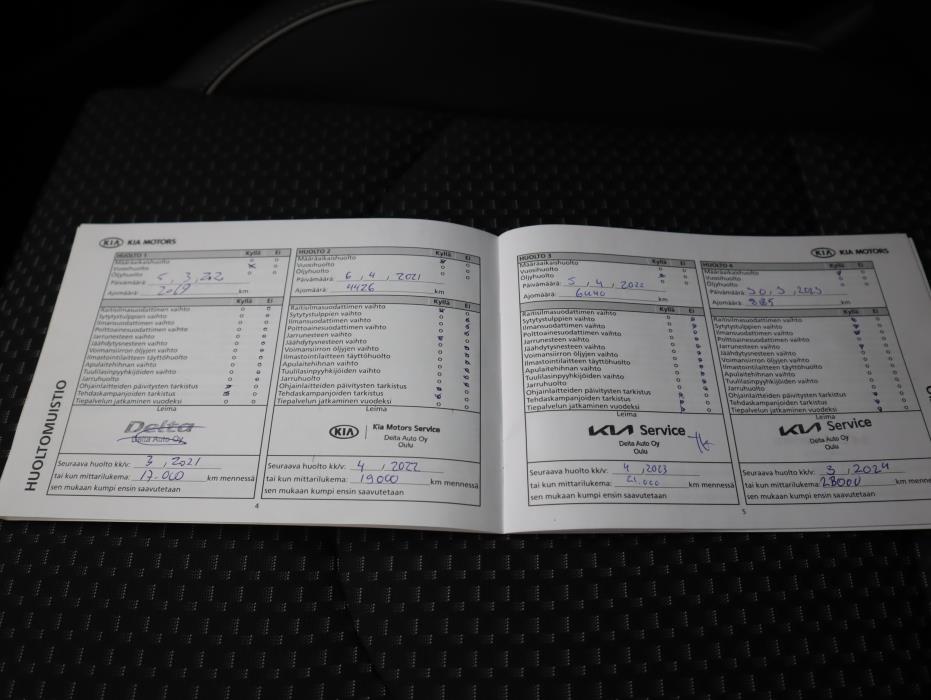 KIA MOTORS
HUOLTOMUISTIO
HUOLTO 1 Kyllä Ei
Määräaikaishuolto
Vuosihuolto
Öljyhuolto
Päivämäärä:
Ajomäärä: 2069 km
Kyllä Ei
Raitisilmasuodattimen vaihto
Sytytystulppien vaihto
Ilmansuodattimen vaihto
Polttoainesuodattimen vaihto
Jarrunesteen vaihto
Jäähdytysnesteen vaihto
Voimansiirron öljyjen vaihto
Ilmastointilaitteen täyttöhuolto
Apulaitehihnan vaihto
Tuulilasinpyyhkijöiden vaihto
Jarruhuolto
Ohjainlaitteiden päivitysten tarkistus
Tehdaskampanjoiden tarkistus
Tiepalvelun jatkaminen vuodeksi
Leima
Delta
Delta Auto Oy
Seuraava huolto kk/v: 3 , 2021
tai kun mittarilukema: 17.000 km mennessä
sen mukaan kumpi ensin saavutetaan
HUOLTO 2 Kyllä Ei
Määräaikaishuolto
Vuosihuolto
Öljyhuolto
Päivämäärä: 6 , 4 , 2021
Ajomäärä: 4426 km
Kyllä Ei
Raitisilmasuodattimen vaihto
Sytytystulppien vaihto
Ilmansuodattimen vaihto
Polttoainesuodattimen vaihto
Jarrunesteen vaihto
Jäähdytysnesteen vaihto
Voimansiirron öljyjen vaihto
Ilmastointilaitteen täyttöhuolto
Apulaitehihnan vaihto
Tuulilasinpyyhkijöiden vaihto
Jarruhuolto
Ohjainlaitteiden päivitysten tarkistus
Tehdaskampanjoiden tarkistus
Tiepalvelun jatkaminen vuodeksi
Leima
KIA Kia Motors Service
Delta Auto Oy
Oulu
Seuraava huolto kk/v: 4 , 2022
tai kun mittarilukema: 19000 km mennessä
sen mukaan kumpi ensin saavutetaan
4
KIA MOTORS
HUOLTO 3 Kyllä Ei
Määräaikaishuolto
Vuosihuolto
Öljyhuolto
Päivämäärä: 5 , 4 , 2022
Ajomäärä: 6440 km
Kyllä Ei
Raitisilmasuodattimen vaihto
Sytytystulppien vaihto
Ilmansuodattimen vaihto
Polttoainesuodattimen vaihto
Jarrunesteen vaihto
Jäähdytysnesteen vaihto
Voimansiirron öljyjen vaihto
Ilmastointilaitteen täyttöhuolto
Apulaitehihnan vaihto
Tuulilasinpyyhkijöiden vaihto
Jarruhuolto
Ohjainlaitteiden päivitysten tarkistus
Tehdaskampanjoiden tarkistus
Tiepalvelun jatkaminen vuodeksi
Leima
KIA Service
Delta Auto Oy
Oulu
Seuraava huolto kk/v: 4 , 2023
tai kun mittarilukema: 21.000 km mennessä
sen mukaan kumpi ensin saavutetaan
HUOLTO 4 Kyllä Ei
Määräaikaishuolto
Vuosihuolto
Öljyhuolto
Päivämäärä: 30 , 3 , 2023
Ajomäärä: km
Kyllä Ei
Raitisilmasuodattimen vaihto
Sytytystulppien vaihto
Ilmansuodattimen vaihto
Polttoainesuodattimen vaihto
Jarrunesteen vaihto
Jäähdytysnesteen vaihto
Voimansiirron öljyjen vaihto
Ilmastointilaitteen täyttöhuolto
Apulaitehihnan vaihto
Tuulilasinpyyhkijöiden vaihto
Jarruhuolto
Ohjainlaitteiden päivitysten tarkistus
Tehdaskampanjoiden tarkistus
Tiepalvelun jatkaminen vuodeksi
Leima
KIA Service
Delta Auto Oy
Oulu
Seuraava huolto kk/v: 3 , 2024
tai kun mittarilukema: 23000 km menness
sen mukaan kumpi ensin saavutetaan
5